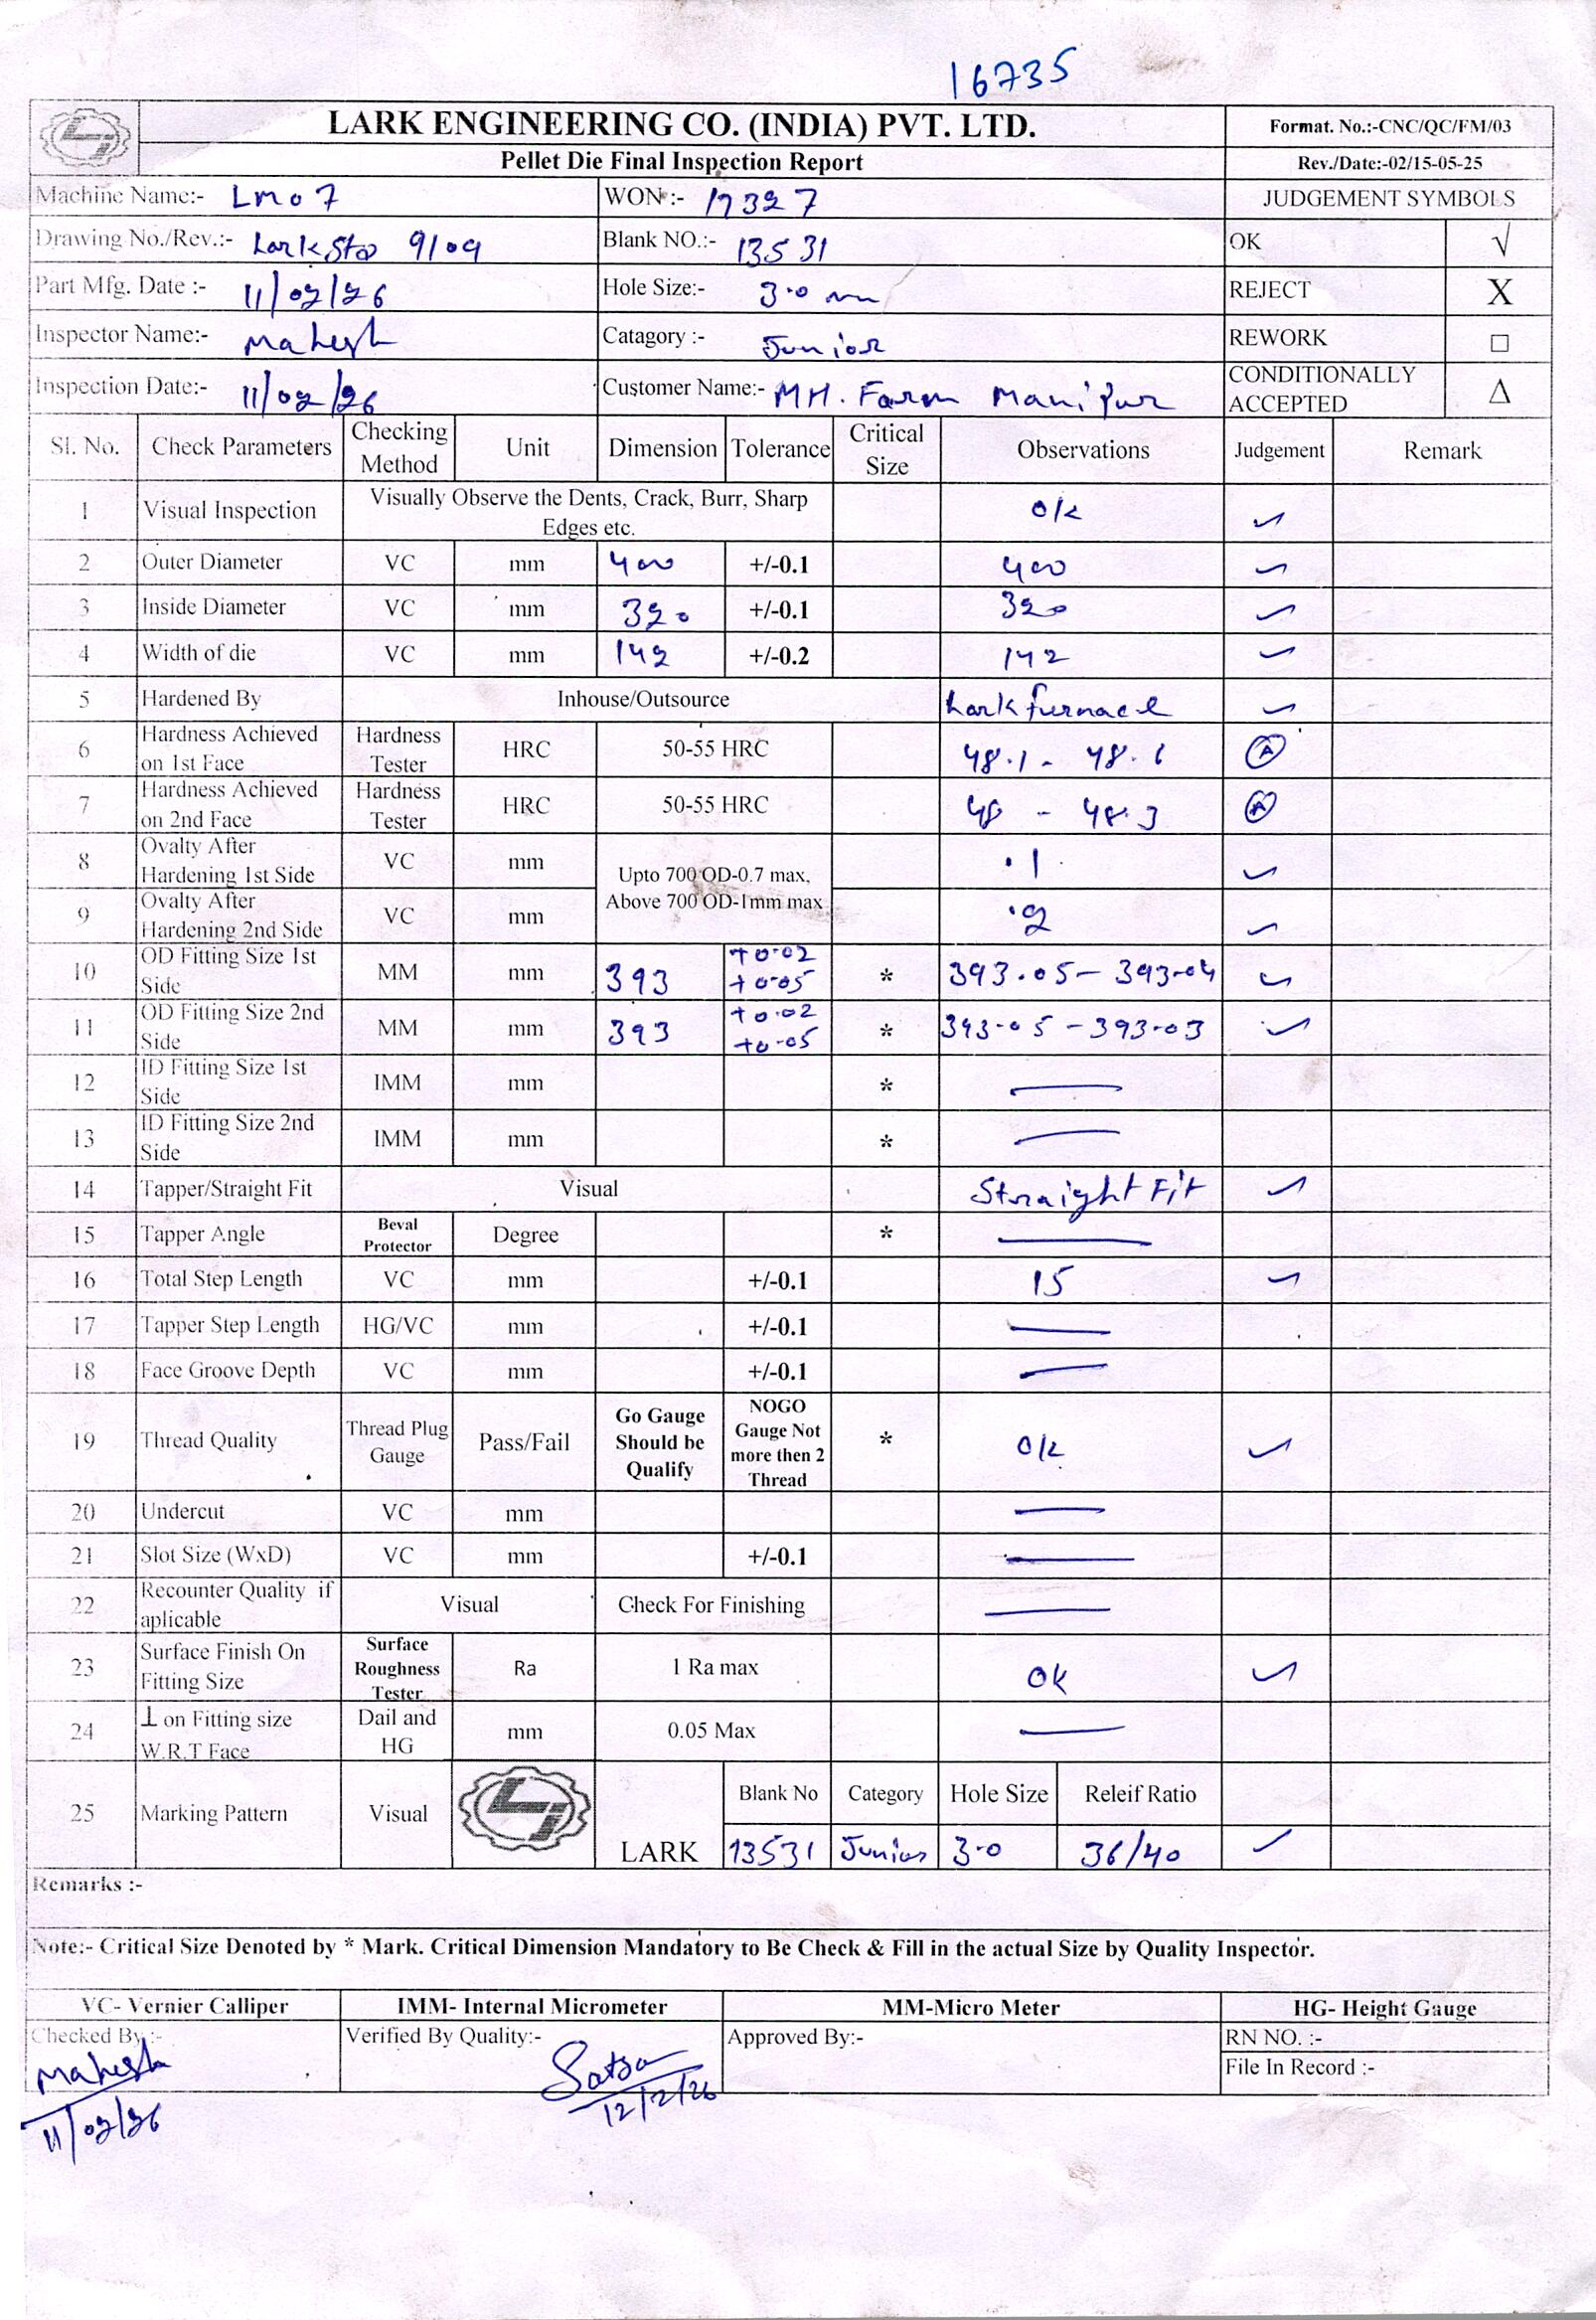 16735
LARK ENGINEERING CO. (INDIA) PVT. LTD.
Format. No.:-CNC/QC/FM/03
Pellet Die Final Inspection Report
Rev./Date:-02/15-05-25
Machine Name:- Lm07 WON :- 17327 JUDGEMENT SYMBOLS
Drawing No./Rev.:- Lark Std 9/09 Blank NO.:- 13531 OK √
Part Mfg. Date :- 11/02/26 Hole Size:- 3.0 mm REJECT X
Inspector Name:- Mahesh Catagory :- Junior REWORK □
Inspection Date:- 11/02/26 Customer Name:- MH. Farm Manipur CONDITIONALLY ACCEPTED Δ
Sl. No. Check Parameters Checking Method Unit Dimension Tolerance Critical Size Observations Judgement Remark
1 Visual Inspection Visually Observe the Dents, Crack, Burr, Sharp Edges etc. O/K ✓
2 Outer Diameter VC mm 400 +/-0.1 400 ✓
3 Inside Diameter VC mm 320 +/-0.1 320 ✓
4 Width of die VC mm 142 +/-0.2 142 ✓
5 Hardened By Inhouse/Outsource Lark furnace ✓
6 Hardness Achieved on 1st Face Hardness Tester HRC 50-55 HRC 48.1 - 48.6 Ⓐ
7 Hardness Achieved on 2nd Face Hardness Tester HRC 50-55 HRC 48 - 48.3 Ⓐ
8 Ovalty After Hardening 1st Side VC mm Upto 700 OD-0.7 max, Above 700 OD-1mm max .1 ✓
9 Ovalty After Hardening 2nd Side VC mm .2 ✓
10 OD Fitting Size 1st Side MM mm 393 +0.02 +0.05 * 393.05 - 393.04 ✓
11 OD Fitting Size 2nd Side MM mm 393 +0.02 +0.05 * 393.05 - 393.03 ✓
12 ID Fitting Size 1st Side IMM mm * —
13 ID Fitting Size 2nd Side IMM mm * —
14 Tapper/Straight Fit Visual Straight Fit ✓
15 Tapper Angle Beval Protector Degree * —
16 Total Step Length VC mm +/-0.1 15 ✓
17 Tapper Step Length HG/VC mm +/-0.1 —
18 Face Groove Depth VC mm +/-0.1 —
19 Thread Quality Thread Plug Gauge Pass/Fail Go Gauge Should be Qualify NOGO Gauge Not more then 2 Thread * O/K ✓
20 Undercut VC mm —
21 Slot Size (WxD) VC mm +/-0.1 —
22 Recounter Quality if aplicable Visual Check For Finishing —
23 Surface Finish On Fitting Size Surface Roughness Tester Ra 1 Ra max OK ✓
24 ⊥ on Fitting size W.R.T Face Dail and HG mm 0.05 Max —
25 Marking Pattern Visual LARK Blank No Category Hole Size Releif Ratio
13531 Junior 3.0 36/40 ✓
Remarks :-
Note:- Critical Size Denoted by * Mark. Critical Dimension Mandatory to Be Check & Fill in the actual Size by Quality Inspector.
VC- Vernier Calliper IMM- Internal Micrometer MM-Micro Meter HG- Height Gauge
Checked By :- Verified By Quality:- Approved By:- RN NO. :-
File In Record :-
Mahesh
11/02/26
12/2/26